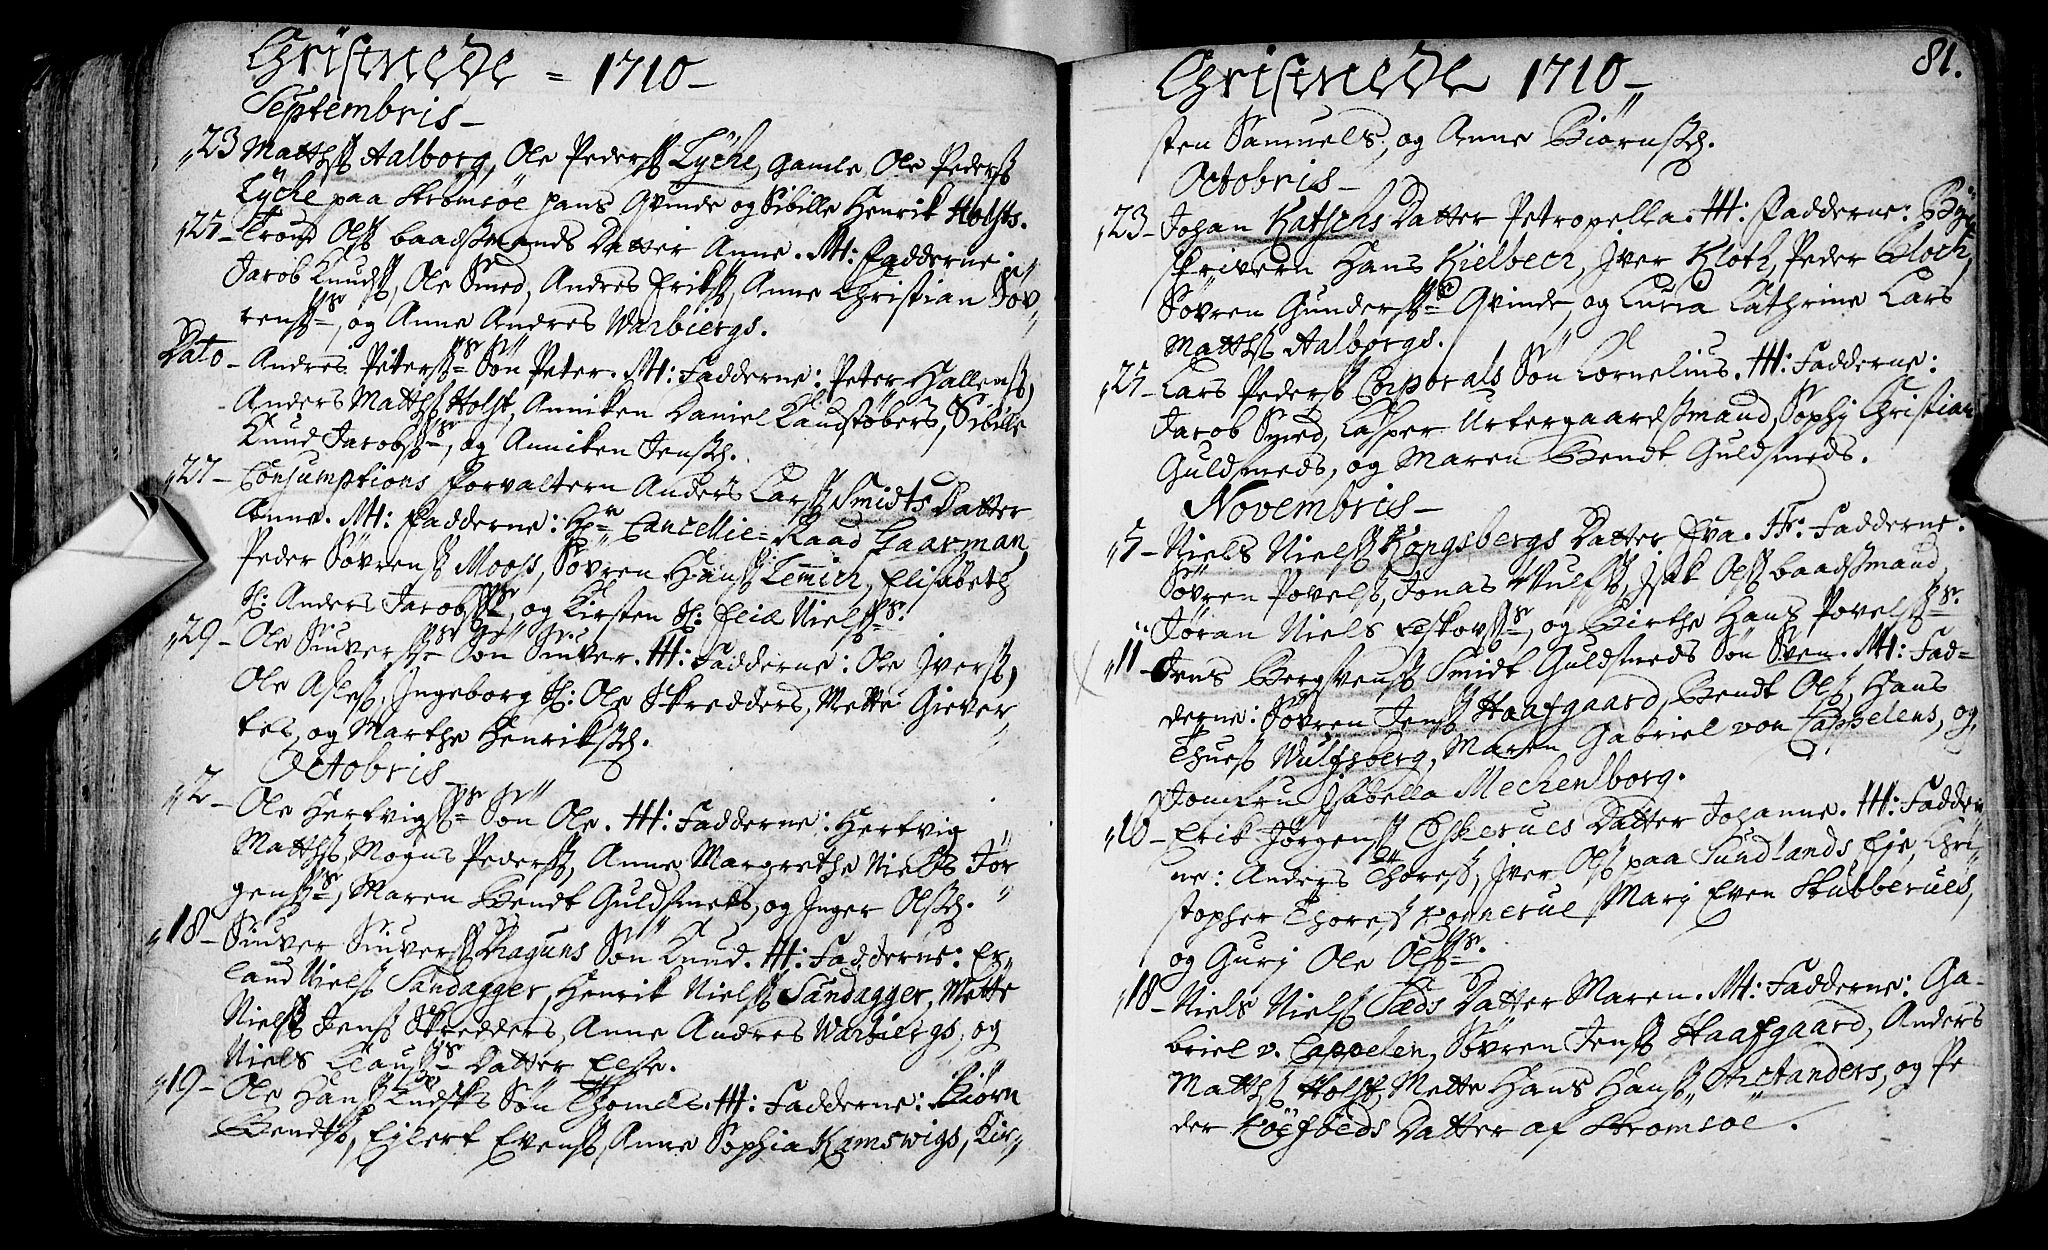 Christnede = 1710 –
Septembris –
23 Matths Aalborg, Ole Peders Lÿche, gamle Ole Peders
Lÿche paa Strömsöe hans Qvinde og Sibille Henrik Holsts.
25 – Trond Ols baadsmands Datter Anne. M: Fadderne:
Jacob Knuds, Ole Smed, Andres Eriks, Anne Christian Söv
rens, og Anne Andres Warbiergs.
Dato – Andres Peters Sön Peter. M: Fadderne: Peter Hallens,
Anders Matths Holst, Anniken Daniel Kandstöbers, Sibille
Knud Jacobs, og Anniken Jensch.
27 – Consumptions Forvaltern Anders Lars Smidts Datter
Anne. M: Fadderne: Hr Cancellie = Raad Gaarman,
Peder Sövrens Moos, Sövren Hans Lemich, Elisabeth
S: Anders Jacobs, og Kirsten S: Eliæ Niels.
29 – Ole Siuvers Sön Siuver. M: Fadderne: Ole Ivers,
Ole Asles, Ingeborg S: Ole Skredders, Mette Giever
tes, og Marthe Henriksch.
Octobris
2 – Ole Hertvigs Sön Ole. M: Fadderne: Hertvig
Matths, Mogns Peders, Anne Margrethe Niels Jör
gens, Maren Bendt Guldsmeds, og Inger Olsch.
18 – Siuver Siuvers Draguns Sön Knud. M: Fadderne: Er
land Niels Sandagger, Henrik Niels Sandagger, Mette
Niels Jens Skredders, Anne Andres Warbiergs, og
Niels Claus Datter Else.
19 – Ole Hans Sön Thomes. M: Fadderne: Biörn
Bendts, Ejlert Evens, Anne Sophia Ramswigs, Kir
Christnede 1710 –
81.
sten Samuels, og Anne Biörnsch.
Octobris –
23 – Johan Katschs Datter Petronella. M: Fadderne: Bÿe
skrivern Hans Kielbech, Iver Kloth, Peder Bloch,
Sövren Gunders Qvinde, og Lucia Cathrine Lars
Matths Aalborgs.
25 – Lars Peders Corporals Sön Cornelius. M: Fadderne:
Jacob Smed, Casper Urtergaardsmand, Sophj Christian
Guldsmeds, og Maren Bendt Guldsmeds.
Novembris –
5 – Niels Niels Kongsbergs Datter Eva. Fr: Fadderne:
Sövren Povels, Jonas Wulfs, Isak Ols baadsmand,
Jöran Niels Eskovs, og Birthe Hans Povels.
11 – Jens Bergsvens Smidt Guldsmeds Sön Sven. M: Fad=
derne: Sövren Jens Haafgaard, Bendt Ols, Hans
Thues Wulfsberg, Maren Gabriel von Cappelens, og
Jomfru Isabella Mechenborg.
16 – Erik Jörgens Eskerues Datter Johanne. M: Fadder
ne: Anders Thores, Iver Ols paa Sundlands Eje, Chri
stopher Thores Konnerue Marj Even Skubberues,
og Gurj Ole Ols.
18 – Niels Niels Sæds Datter Maren. M: Fadderne: Ga=
briel v. Cappelen, Sövren Jens Haafgaard, Anders
Matths Holst, Mette Hans Hans Arctanders, og Pe
der Datter af Strömsöe.